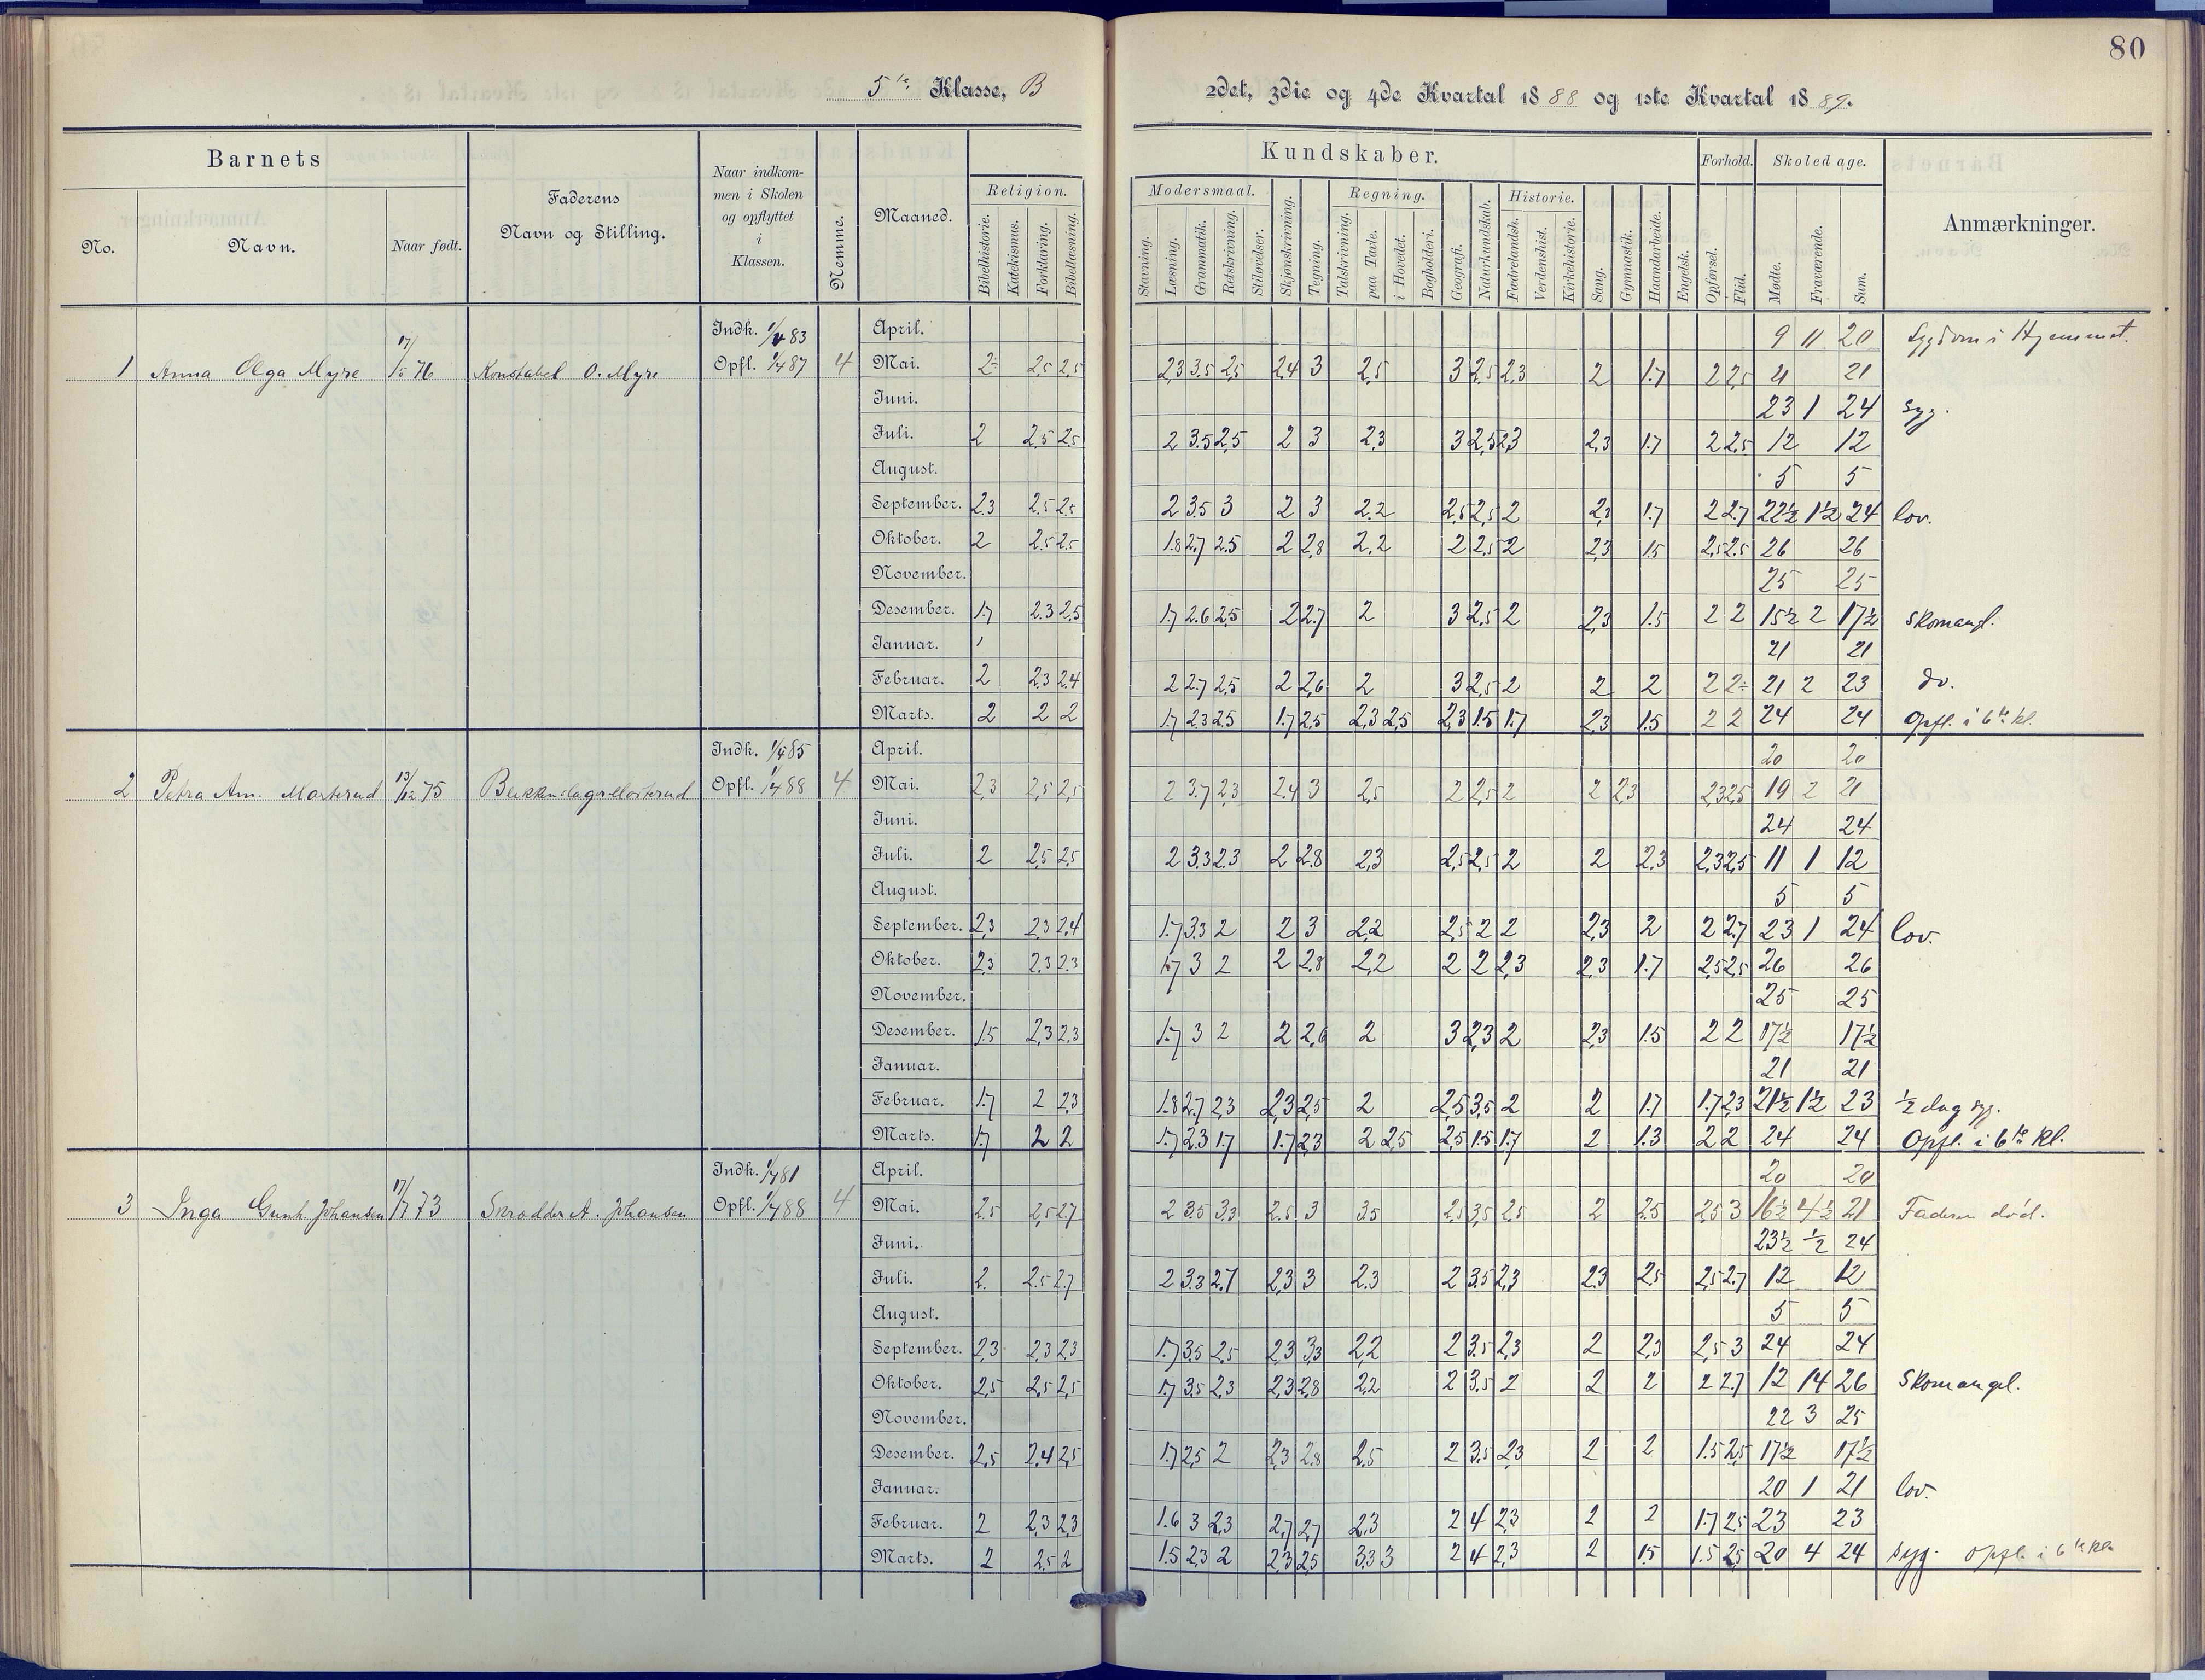 80
5te Klasse, B
2det, 3die og 4de Kvartal 1888 og 1ste Kvartal 1889.
Barnets
No. Navn. Naar født.
Faderens
Navn og Stilling.
Naar indkom-
men i Skolen
og opflyttet
i
Klassen.
Nemme.
Maaned.
Kundskaber.
Religion.
Bibelhistorie. Katekismus. Forklaring. Bibellæsning.
Modersmaal. Regning. Historie. Forhold. Skoledage.
Stavning. Læsning. Grammatik. Retskrivning. Stiløvelser. Skjønskrivning. Tegning. Talskrivning. paa Tavle. i Hovedet. Bogholderi. Geografi. Naturkundskab. Fædrelandsh. Verdenshist. Kirkehistorie. Sang. Gymnastik. Haandarbeide. Engelsk. Opførsel. Flid. Mødte. Fraværende. Sum.
Anmærkninger.
1 Anna Olga Myre 17/5 76 Konstabel O. Myre Indk. 1/4 83 Opfl. 1/4 87 4
April. 9 11 20 Sygdom i Hjemmet.
Mai. 2 2,5 2,5 2,3 3.5 2,5 2,4 3 2,5 3 2,5 2,3 2 1.7 2 2,5 21 21
Juni. 23 1 24 Syg.
Juli. 2 2,5 2,5 2 3.5 2,5 2 3 2,3 3 2,5 2,3 2,3 1.7 2 2,5 12 12
August. 5 5
September. 2.3 2.5 2.5 2 3.5 3 2 3 2.2 2,5 2,5 2 2,3 1.7 2 2.7 22½ 1½ 24 lov.
Oktober. 2 2.5 2.5 1.8 2.7 2.5 2 2,8 2.2 2 2,5 2 2,3 1.5 2,5 2.5 26 26
November. 25 25
Desember. 1.7 2.3 2.5 1.7 2.6 2.5 2 2.7 2 3 2,5 2 2,3 1.5 2 2 15½ 2 17½ Skomangl.
Januar. 21 21
Februar. 2 2.3 2.4 2 2.7 2.5 2 2,6 2 3 2,5 2 2 2 2 2 21 2 23 do.
Marts. 2 2 2 1.7 2.3 2.5 1.7 2.5 2,3 2,5 2,3 1.5 1.7 2,3 1.5 2 2 24 24 Opfl. i 6te kl.
2 Petra Am. Marterud 13/12 75 Indk. 1/4 85 Opfl. 1/4 88 4
April. 20 20
Mai. 2,3 2,5 2,5 2 3.7 2,3 2.4 3 2,5 2 2,5 2 2 2,3 2,3 2,5 19 2 21
Juni. 24 24
Juli. 2 2,5 2,5 2 3.3 2.3 2 2.8 2,3 2,5 2,5 2 2 2,3 2,3 2,5 11 1 12
August. 5 5
September. 2,3 2,3 2,4 1.7 3.3 2 2 3 2,2 2,5 2 2 2,3 2 2 2.7 23 1 24 lov.
Oktober. 2,3 2,3 2,3 1.7 3 2 2 2,8 2,2 2 2 2,3 2,3 1.7 2,5 2,5 26 26
November. 25 25
Desember. 1.5 2,3 2,3 1.7 3 2 2 2,6 2 3 2,3 2 2,3 1.5 2 2 17½ 17½
Januar. 21 21
Februar. 1.7 2 2,3 1.8 2.7 2,3 2,3 2,5 2 2,5 3,5 2 2 1.7 1.7 2,3 21½ 1½ 23 ½ dag syg.
Marts. 1.7 2 2 1.7 2.3 1.7 1.7 2.3 2 2,5 2,5 1.5 1.7 2 1.3 2 2 24 24 Opfl. i 6te kl.
3 Inga Gunh. Johansen 17/7 73 Skrædder A. Johansen Indk. 1/4 81 Opfl. 1/4 88 4
April. 20 20
Mai. 2.5 2,5 2.7 2 3.5 3.3 2.5 3 3.5 2,5 3,5 2,5 2 2.5 2,5 3 16½ 4½ 21 Faderen død.
Juni. 23½ ½ 24
Juli. 2. 2.5 2.7 2 3.3 2.7 2,3 3 2.3 2 3.5 2,3 2.3 2,5 2,5 2.7 12 12
August. 5 5
September. 2,3 2.3 2.3 1.7 3.5 2,5 2,3 3,3 2,2 2 3.5 2,3 2 2,3 2,5 3 24 24
Oktober. 2,5 2,5 2,5 1.7 3.5 2.3 2,3 2.8 2,2 2 3.5 2 2 2 2 2.7 12 14 26 Skomangel.
November. 22 3 25
Desember. 2,5 2,4 2,5 1.7 2,5 2 2,3 2.8 2.5 2 3.5 2,3 2 2 1.5 2,5 17½ 17½
Januar. 20 1 21 lov.
Februar. 2 2,3 2,3 1.6 3 2,3 2,7 2,7 2,3 2 4 2,3 2 2 1.7 2,5 23 23
Marts. 2 2.5 2 1.5 2,3 2 2,3 2,5 3,3 3 2 4 2,3 2 1.5 1.5 2,5 20 4 24 Syg. Opfl. i 6te kl.